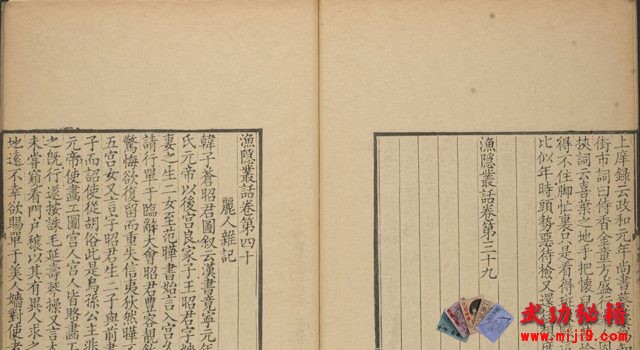 上庠録云政和元年尚書蔡
街市詞曰侍香金童方盛行
挾詞云喜葉之地手把懷兒
得不住脚忙裏只是看得班
比似年時頭勢惡待檢又還
漁隱叢話卷第三十九
漁隱叢話卷第四十
麗人雜記
韓子蒼昭君圖叙云漢書竟寧元年
氏元帝以後宮良家子王昭君字嬙
妻之生二女至范曄書始言入宮久
請行單于臨辭大會昭君豐容靚飾
驚悔欲復留而重失信夷狄然曄不
五宮女又言字昭君生二子與前書
子而詔使從胡俗此是烏孫公主非
元帝使畫工圖宮人宮人皆賂畫工
之既行遂按誅毛延壽琴操又言本
未嘗窺看門戶穰以其有異人求之
地遠不幸欲賜單于美人嬙對使者
武功秘籍
www.miji9.com